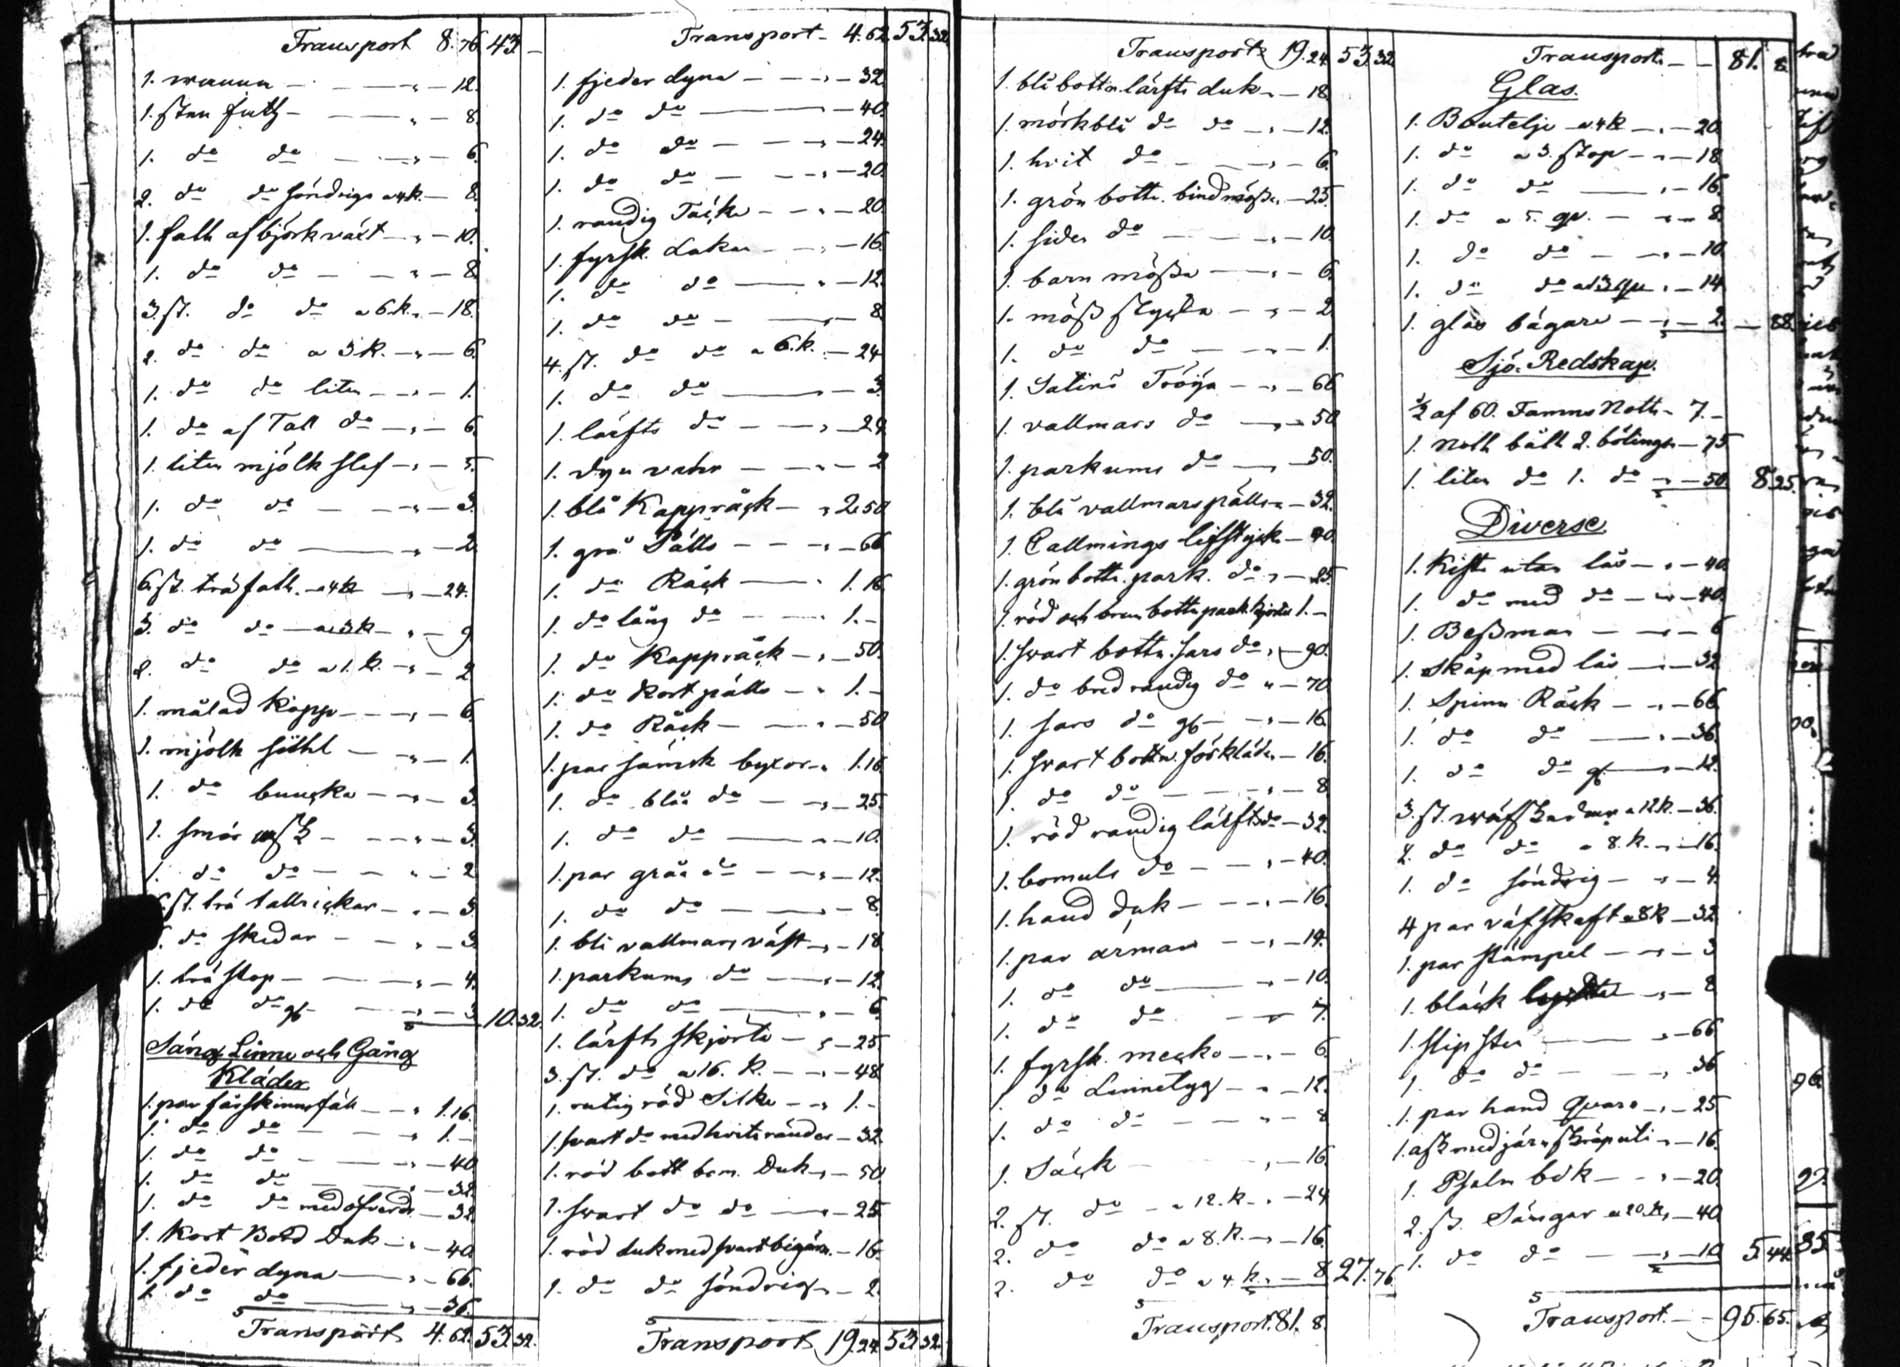 Transport 8.76 43 -
1. wanna - - 12.
1. sten fath - - 8.
1. do do - - 6.
2. do do söndrigs a 4k. - 8.
1. fath af björkväxt - 10.
1. do do - - 8
3. st. do do a 6.k. - 18.
2. do do a 3 k. - 6.
1. do do liten - - 1.
1. do af Tall do - 6.
1. liten mjölk slef - 5.
1. do do - - 3.
1. do do - 2.
6. st. träfath. a 4k - 24.
3. do do a 3 k - 9
2. do do a 1. k. - 2
1. målad Kopp - - 6.
1. mjölk - 1.
1. do buncka - - 3.
1. smör ask - - 3.
1. do do - - 2
6 st. trä tallrickar - 3.
do skedar - - 3.
1. trä stop - - 4.
1. do do gl - - 3. 10.32.
Säng Linne och Gång
Kläder
1. par fårskinns fäll - 1.16.
1. do do - - 1. -
1. do do - - 40
1. do do - 32.
1. do do med öfverdr. - 32
1. Kort Bord Duk - - 40
1. fjeder dyna - - 66.
1. do do - - 36.
Transport 4.62. 53 32.
Transport - 4.62 53 32
1. fjeder dyna - - 32
1. do do - 40.
1. do do - - 24.
1. do do - - 20.
1. randig Täcke - - 20.
1. fyrsk. Lakan - - 16.
1. do do - - 12.
1. do do - - 8
4. st. do do a 6. k. - 24
1. do do - 3.
1. lärfts do - - 24.
1. dyn vahr - - 2
1. blå Kappråck - 2.50
1. grå Pälls - - 66
1. do Råck - 1.16
1. do lång do - - 1. -
1. do Kappråck - 50.
1. do Kort pälls - 1. -
1. do Råck - - 50
1. par sämsk byxor - 1.16.
1. do blåa do - - 25.
1. do do - 10.
1. par gråa do - - 12.
1. do do - 8.
1. blå vallmars väst - 18
1. parkums do - - 12.
1. do do - - 6.
1. lärfts skjorta - - 25
3. st. do a 16. k. - - 48.
1. rutig röd Silke - - 1. -
1. svart do med hvita ränder - 32.
1. röd bott bom. Duk - 50
1. svart do do - - 25
1. röd duk med svart bigärn. - 16
1. do do söndrig - 2.
Transport 19.24 53 32
Transport 19.24 53.32
1. blå bottn lärfts duk - 18.
1. mörkblå do do - 12.
1. hvit do - - 6.
1. grön bottn. bindmössa - 25.
1. siden do - - 10.
1. barn mössa - - 6.
1. möss stycke - - 2.
1. do do - - 1.
1. Satins Tröya - - 66
1. vallmars do - 50
1. parkums do - 50.
1. blå vallmars pälls - 32.
1. Callmings lifstyck - 40.
1. grön bottn. park. do - 25
1. röd och brun bottn park kjortel 1. -
1. svart bottn. sars do - 90.
1. do bred randig do - 70
1. sars do gl - - 16.
1. svart bottn. förkläde - 16.
1. do do - - 8
1. röd randig lärfts do - 32.
1. bomuls do - - 40.
1. hand duk - - 16.
1. par armar - - 14.
1. do do - 10.
1. do do - 7.
1. fyrsk. - 6.
1. do Linnetyg - - 12.
1. do do - - 8
1. Säck - 16.
2. st. do - a 12. k. - 24
2. do do a 8. k. - 16.
2. do do a 4 k. - 8. 27.76
Transport. 81. 8.
Transport. - 81. 8.
Glas.
1. Boutelje a 4 k - 20.
1. do a 3. stop - 18.
1. do do - 16.
1. do a 5. qv. - 8.
1. do do - 10.
1. do do a 3 qv - 14
1. glas bägare - 2. - 88.
Sjö. Redskap.
1/2 af 60. Famns Noth - 7. -
1. Noth båth 2. bötingen - 75
1. liten do 1. do - 50. 8.25.
Diverse
1. Kista utan lås - 40.
1. do med do - 40.
1. Bessman - - 6
1. Skåp med lås - 32
1. Spinn Råck - - 66.
1. do do - 36.
1. do do gl - 12.
3. st. a 12 k. - 36
2. do do a 8. k. - 16.
1. do söndrig - - 4.
4 par väfskaft a 8 k - 32.
1. par stämpel - - 3
1. bläck - 8
1. slip sten - 66
1. do do - - 36
1. par hand qvarn - 25
1. ask med järn skräputi - 16.
1. Psalm bok - - 20.
2. st. Sängar a 20. k. - 40
1. do do - - 10 5.44
Transport. - 95.65.